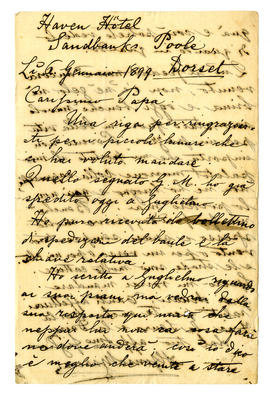 Haven Hotel
Sandbanks Poole
Dorset
Gennaio 1899
Carissimo Papa
Una riga per ringraziar
ti per i piccoli lunari che
ci hai voluto mandare
Quello segnato G. M. ho già
spedito oggi a Guglielmo
Ho pure ricevuto il bollettino
di spedizione del baule e la
chiave relativa
Ho scritto a Guglielmo
ai suoi piani, ma vedrai dalla
sua risposta qui unita che
neppur lui non sa cosa farà
ne dove andrà, così io dico
è meglio che venite a stare